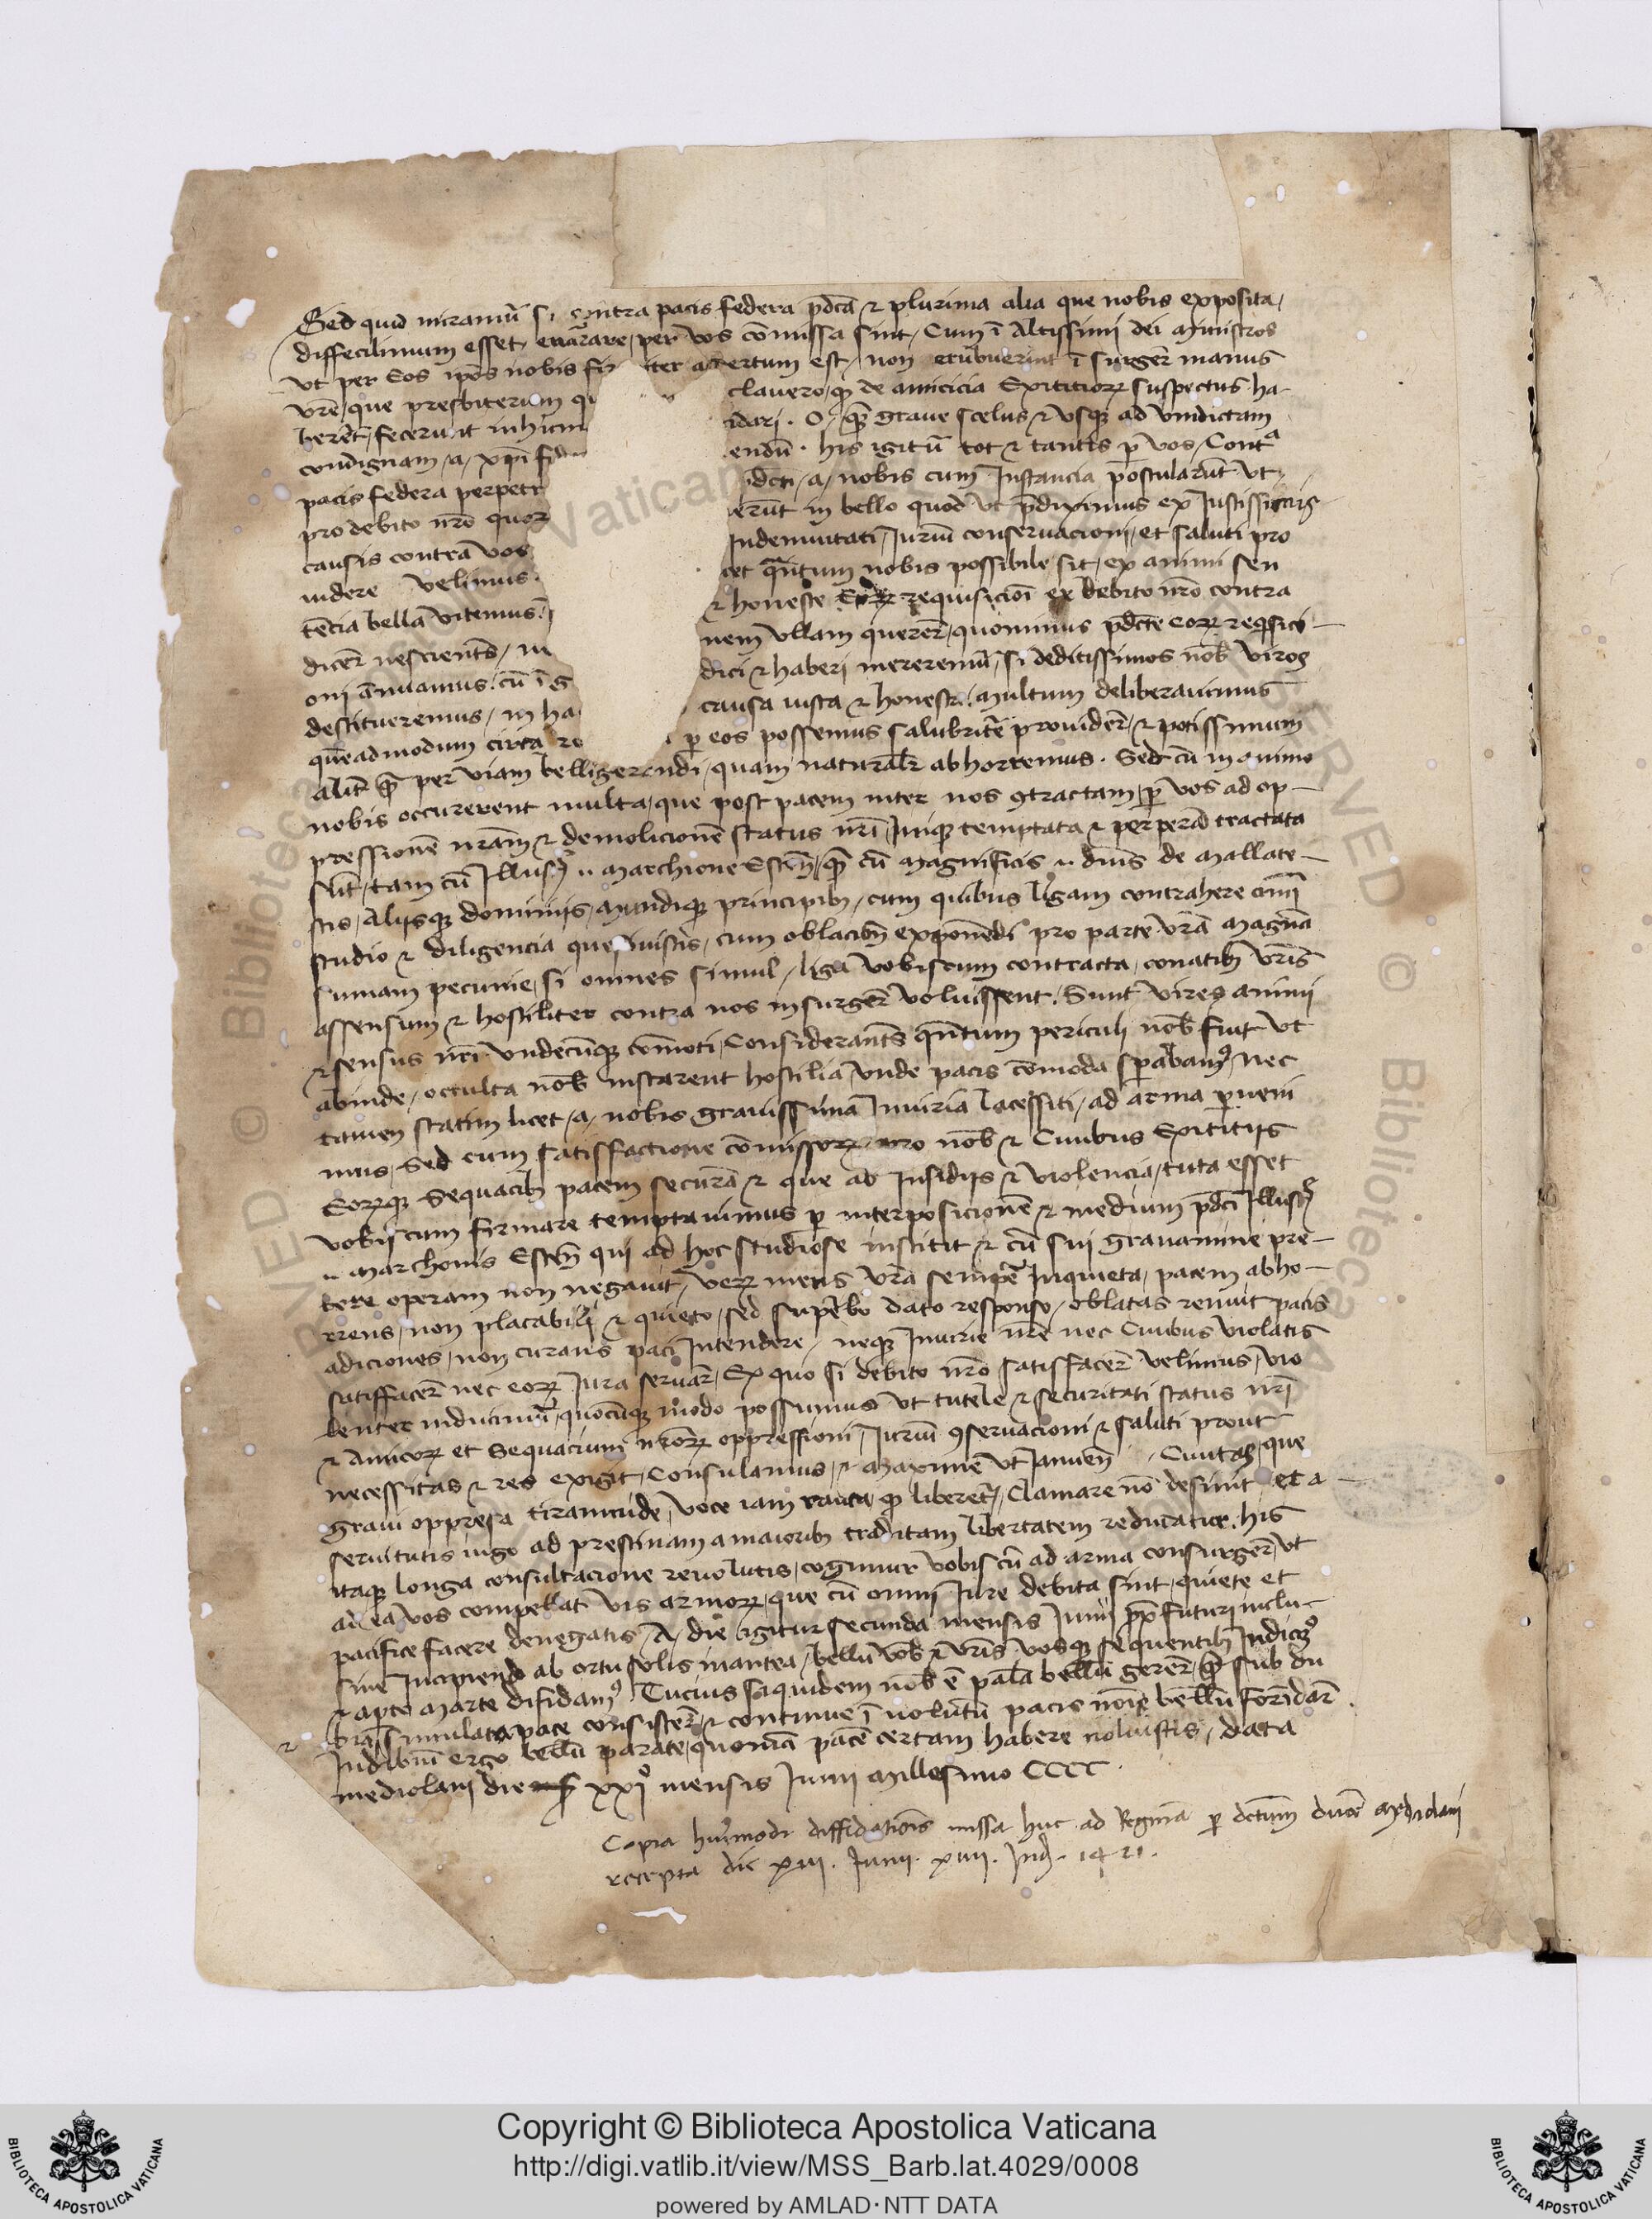 Sed quid miramur̃ si contra pacis federa p̃dc̃a ⁊ plurima alia que nobis exposita /
diffecilimum esset enarrare / per vos cõmissa sint / Cum ĩ Altissimi dei ministros
vt per Eos ip̃os nobis fir iter assertum est / non erubuerint ĩsurger̃ manus
vr̃e / que presbiterum q clavero / qꝫ de amicicia Exititioꝝ suspectus ha-
berẽt / fecerunt inhum idari . O / qꝫ̃ graue scelus ⁊ vsqꝫ ad vindictam
condignam / a / xp̃i fide endũ . his igitur̃ tot ⁊ tantis p̱ vos / Contª
pacis federa perpetr dc̃ti / a / nobis cum Instancia postularũt vt
pro debito nr̃o quoꝝ erũt in bello quod vt p̃diximus ex Iustissimis
causis contra vos Indemnitati / Iuriũ conseruacioni / et saluti pro
uidere velimus . cet qũantum nobis possibile sit / ex animi sen
tẽcia bella vitemus ⁊ honeste requisiciõi ex debito nr̃o contra
dicer̃ nescient̃s / in nem vllam querer̃ / quominus p̃dc̃te eoꝝ reqisici-
oni ãnuamus . cũ ĩ g dici ⁊ haberi mereremur̃ / si deditissimos nob̃ viros
destitueremus / in ha causa iusta ⁊ honesta / multum deliberauimus
quẽadmodum circa re p̱ eos possemus salubriter̃ prouider̃ / ⁊ potissimum
alit̃ qꝫ̃ per viam belligerendi / quam naturalr̃ abhorremus . Sed cũ in animo
nobis occurerent multa / que post pacem inter nos ꝯtractam / p̱ vos ad op-
pressionẽ nr̃am ⁊ demolicionẽ status nr̃i / Iniqꝫ temptata ⁊ perperã tractata
sũt / tam cũ Illusʳ .. Marchione Estẽñ / qꝫ̃ cũ Magnificis .. dñis de Mallate-
stis / Alijsqꝫ dominiis / mundiqꝫ principibꝫ / cum quibus ligam contrahere omĩ
studio ⁊ diligencia quesiuistis / cum oblacibꝫ exponẽdi pro parte vr̃a magnã
sumam pecunie / si omnes simul / liga vobiscum contracta / conatibꝫ vr̃is
assensum ⁊ hostiliter contra nos insurger̃ voluissent . Sunt vires animi
⁊ sensus nr̃i vndecũqꝫ cõmoti / Considerant̃s quñtum periculi nob̃ fuit vt
abinde / occulta nob̃ instarent hostilia / vnde pacis cõmoda sperabamꝰ / nec
tamen statim licet / a / nobis grauissima Iniuria lacessiti / ad arma p̱ueni
mus / Sed cum satisfactione cõmissoꝝ pro nob̃ ⁊ Ciuibus Exititiis
Eoꝝqꝫ sequacibꝫ pacem securã ⁊ que ab Insidiis ⁊ violencia / tuta esset
vobiscum firmare temptauimus p̱ interposicionẽ ⁊ medium p̃dc̃i Illusʳ
.. Marchonis Estẽñ qui ad hoc studiose institit ⁊ cũ sui grauamine pre-
bere operam non negauit / veꝝ mens vr̃a semper̃ inquieta / pacem abho-
rrens / non placabili ⁊ quieto / sed superbo dato responso / oblatas renuit pacis
ꝯdiciones / non curans paci Intendere / neqꝫ Iniurie nr̃e nec Ciuibus violatis
satisfacer̃ nec eoꝝ Iura seruar̃ / Ex quo si debito nr̃o satisfacer̃ velimus / vio
lenter inducimur̃ / quocũqꝫ modo possumus vt tutele ⁊ securitati status nr̃i
⁊ Amicoꝝ et Sequacium nr̃oꝝ oppressioni / Iuriũ ꝯseruacioni ⁊ saluti prout
necessitas ⁊ res exigit / Consulamus / ⁊ Maxime vt Ianueñ . Ciuitas / que
graui oppressa tirannide / voce iam rauca / qꝫ liberetʳ / clamare nõ desinit et a-
seruitutis iugo ad prestinam a maioribꝫ traditam libertatem reducatur . his
itaqꝫ longa consultacione reuolutis / cogimur vobiscũ ad arma consurger̃ / vt
ad ea vos compellat vis armoꝝ / que cũ omni Iure debita sint / quiete et
pacifice facere denegatis / A / die igitur secunda mensis Iunii ꝓx̃ futuri inclu-
siue Incipiendo ab ortu solis inantea / bellũ vob̃ ⁊ vr̃is vosqꝫ sequentibꝫ Indicimꝰ
⁊ apto Marte difidamꝰ Tucius siquidem nob̃ ẽ palã bellũ gerer̃ / qꝫ̃ sub du
bia simulata pace consister̃ / ⁊ continue ĩ uolutum pacis noĩe bellũ formidar̃ .
⁊ Indubium ergo bellũ parate / quoniã pacẽ certam habere noluistis / data
mediolani die xxiº mensis Iunii Millesimo CCCC
Copia huiꝰmodi diffidationis missa huc ad Reginã p̱ dc̃tum ducẽ Mediolani
recepta die xiii . Iunii . xiiii . Ind . 1421 .
Copyright © Biblioteca Apostolica Vaticana
http://digi.vatlib.it/view/MSS_Barb.lat.4029/0008
powered by AMLAD·NTT DATA
BIBLIOTECA APOSTOLICA VATICANA
BIBLIOTECA APOSTOLICA VATICANA